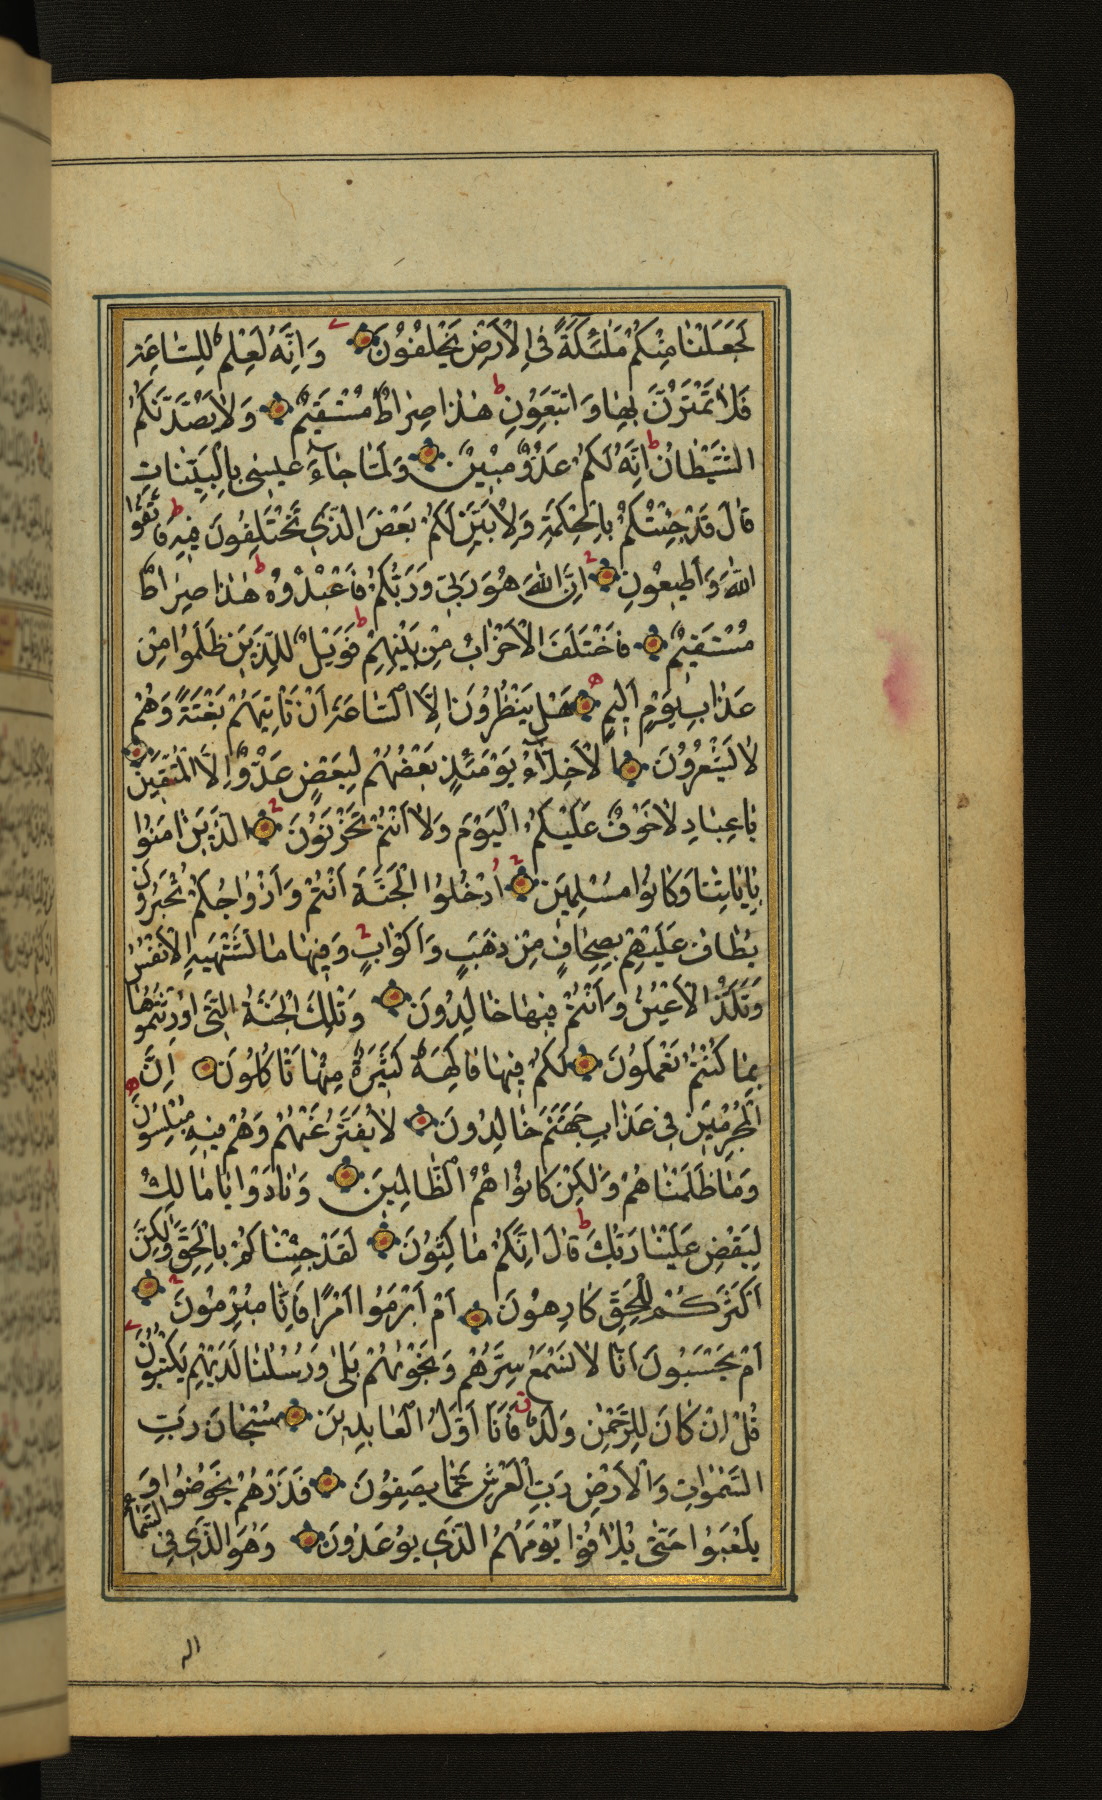 لَجَعَلْنَا مِنْكُمْ مَلٰئِكَةً فِى الْاَرْضِ يَخْلُفُونَ وَاِنَّهُ لَعِلْمٌ لِلسَّاعَةِ
فَلَا تَمْتَرُنَّ بِهَا وَاتَّبِعُونِ هٰذَا صِرَاطٌ مُسْتَقِيمٌ وَلَا يَصُدَّنَّكُمُ
الشَّيْطَانُ اِنَّهُ لَكُمْ عَدُوٌّ مُبِينٌ وَلَمَّا جَاءَ عِيسٰى بِالْبَيِّنَاتِ
قَالَ قَدْ جِئْتُكُمْ بِالْحِكْمَةِ وَلِاُبَيِّنَ لَكُمْ بَعْضَ الَّذِى تَخْتَلِفُونَ فِيهِ فَاتَّقُوا
اللهَ وَاَطِيعُونِ اِنَّ اللهَ هُوَ رَبِّى وَرَبُّكُمْ فَاعْبُدُوهُ هٰذَا صِرَاطٌ
مُسْتَقِيمٌ فَاخْتَلَفَ الْاَحْزَابُ مِنْ بَيْنِهِمْ فَوَيْلٌ لِلَّذِينَ ظَلَمُوا مِنْ
عَذَابِ يَوْمٍ اَلِيمٍ هَلْ يَنْظُرُونَ اِلَّا السَّاعَةَ اَنْ تَاْتِيَهُمْ بَغْتَةً وَهُمْ
لَا يَشْعُرُونَ اَلْاَخِلَّاءُ يَوْمَئِذٍ بَعْضُهُمْ لِبَعْضٍ عَدُوٌّ اِلَّا الْمُتَّقِينَ
يَا عِبَادِ لَا خَوْفٌ عَلَيْكُمُ الْيَوْمَ وَلَا اَنْتُمْ تَحْزَنُونَ اَلَّذِينَ اٰمَنُوا
بِاٰيَاتِنَا وَكَانُوا مُسْلِمِينَ اُدْخُلُوا الْجَنَّةَ اَنْتُمْ وَاَزْوَاجُكُمْ تُحْبَرُونَ
يُطَافُ عَلَيْهِمْ بِصِحَافٍ مِنْ ذَهَبٍ وَاَكْوَابٍ وَفِيهَا مَا تَشْتَهِيهِ الْاَنْفُسُ
وَتَلَذُّ الْاَعْيُنُ وَاَنْتُمْ فِيهَا خَالِدُونَ وَتِلْكَ الْجَنَّةُ الَّتِى اُورِثْتُمُوهَا
بِمَا كُنْتُمْ تَعْمَلُونَ لَكُمْ فِيهَا فَاكِهَةٌ كَثِيرَةٌ مِنْهَا تَاْكُلُونَ اِنَّ
الْمُجْرِمِينَ فِى عَذَابِ جَهَنَّمَ خَالِدُونَ لَا يُفَتَّرُ عَنْهُمْ وَهُمْ فِيهِ مُبْلِسُونَ
وَمَا ظَلَمْنَاهُمْ وَلٰكِنْ كَانُوا هُمُ الظَّالِمِينَ وَنَادَوْا يَا مَالِكُ
لِيَقْضِ عَلَيْنَا رَبُّكَ قَالَ اِنَّكُمْ مَاكِثُونَ لَقَدْ جِئْنَاكُمْ بِالْحَقِّ وَلٰكِنَّ
اَكْثَرَكُمْ لِلْحَقِّ كَارِهُونَ اَمْ اَبْرَمُوا اَمْرًا فَاِنَّا مُبْرِمُونَ
اَمْ يَحْسَبُونَ اَنَّا لَا نَسْمَعُ سِرَّهُمْ وَنَجْوٰيهُمْ بَلٰى وَرُسُلُنَا لَدَيْهِمْ يَكْتُبُونَ
قُلْ اِنْ كَانَ لِلرَّحْمٰنِ وَلَدٌ فَاَنَا اَوَّلُ الْعَابِدِينَ سُبْحَانَ رَبِّ
السَّمٰوَاتِ وَالْاَرْضِ رَبِّ الْعَرْشِ عَمَّا يَصِفُونَ فَذَرْهُمْ يَخُوضُوا وَ
يَلْعَبُوا حَتّٰى يُلَاقُوا يَوْمَهُمُ الَّذِى يُوعَدُونَ وَهُوَ الَّذِى فِى السَّمَاءِ